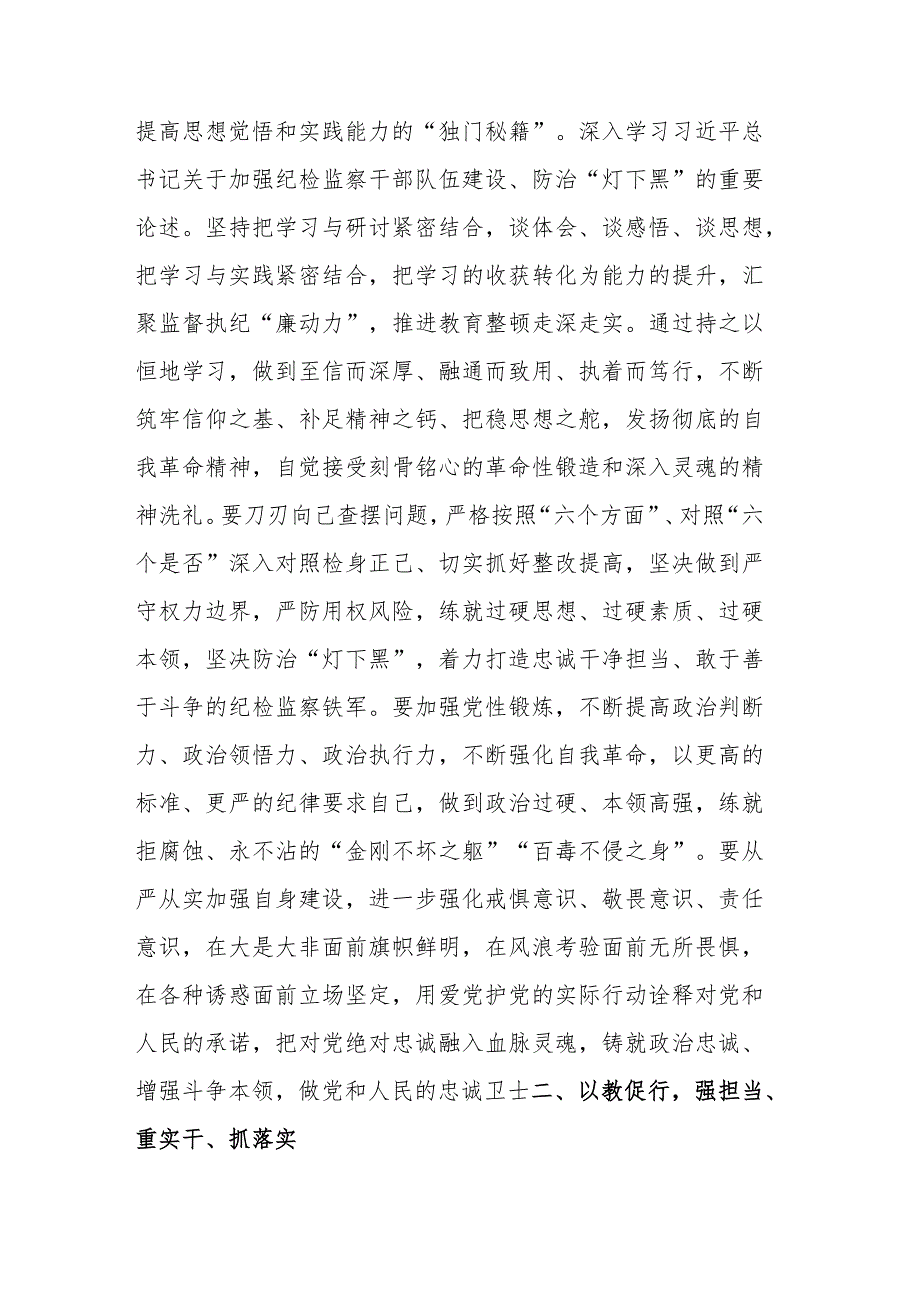 提高思想觉悟和实践能力的“独门秘籍”。深入学习习近平总
书记关于加强纪检监察干部队伍建设、防治“灯下黑”的重要
论述。坚持把学习与研讨紧密结合，谈体会、谈感悟、谈思想，
把学习与实践紧密结合，把学习的收获转化为能力的提升，汇
聚监督执纪“廉动力”，推进教育整顿走深走实。通过持之以
恒地学习，做到至信而深厚、融通而致用、执着而笃行，不断
筑牢信仰之基、补足精神之钙、把稳思想之舵，发扬彻底的自
我革命精神，自觉接受刻骨铭心的革命性锻造和深入灵魂的精
神洗礼。要刀刃向己查摆问题，严格按照“六个方面”、对照“六
个是否”深入对照检身正己、切实抓好整改提高，坚决做到严
守权力边界，严防用权风险，练就过硬思想、过硬素质、过硬
本领，坚决防治“灯下黑”，着力打造忠诚干净担当、敢于善
于斗争的纪检监察铁军。要加强党性锻炼，不断提高政治判断
力、政治领悟力、政治执行力，不断强化自我革命，以更高的
标准、更严的纪律要求自己，做到政治过硬、本领高强，练就
拒腐蚀、永不沾的“金刚不坏之躯”“百毒不侵之身”。要从
严从实加强自身建设，进一步强化戒惧意识、敬畏意识、责任
意识，在大是大非面前旗帜鲜明，在风浪考验面前无所畏惧，
在各种诱惑面前立场坚定，用爱党护党的实际行动诠释对党和
人民的承诺，把对党绝对忠诚融入血脉灵魂，铸就政治忠诚、
增强斗争本领，做党和人民的忠诚卫士二、以教促行，强担当、
重实干、抓落实